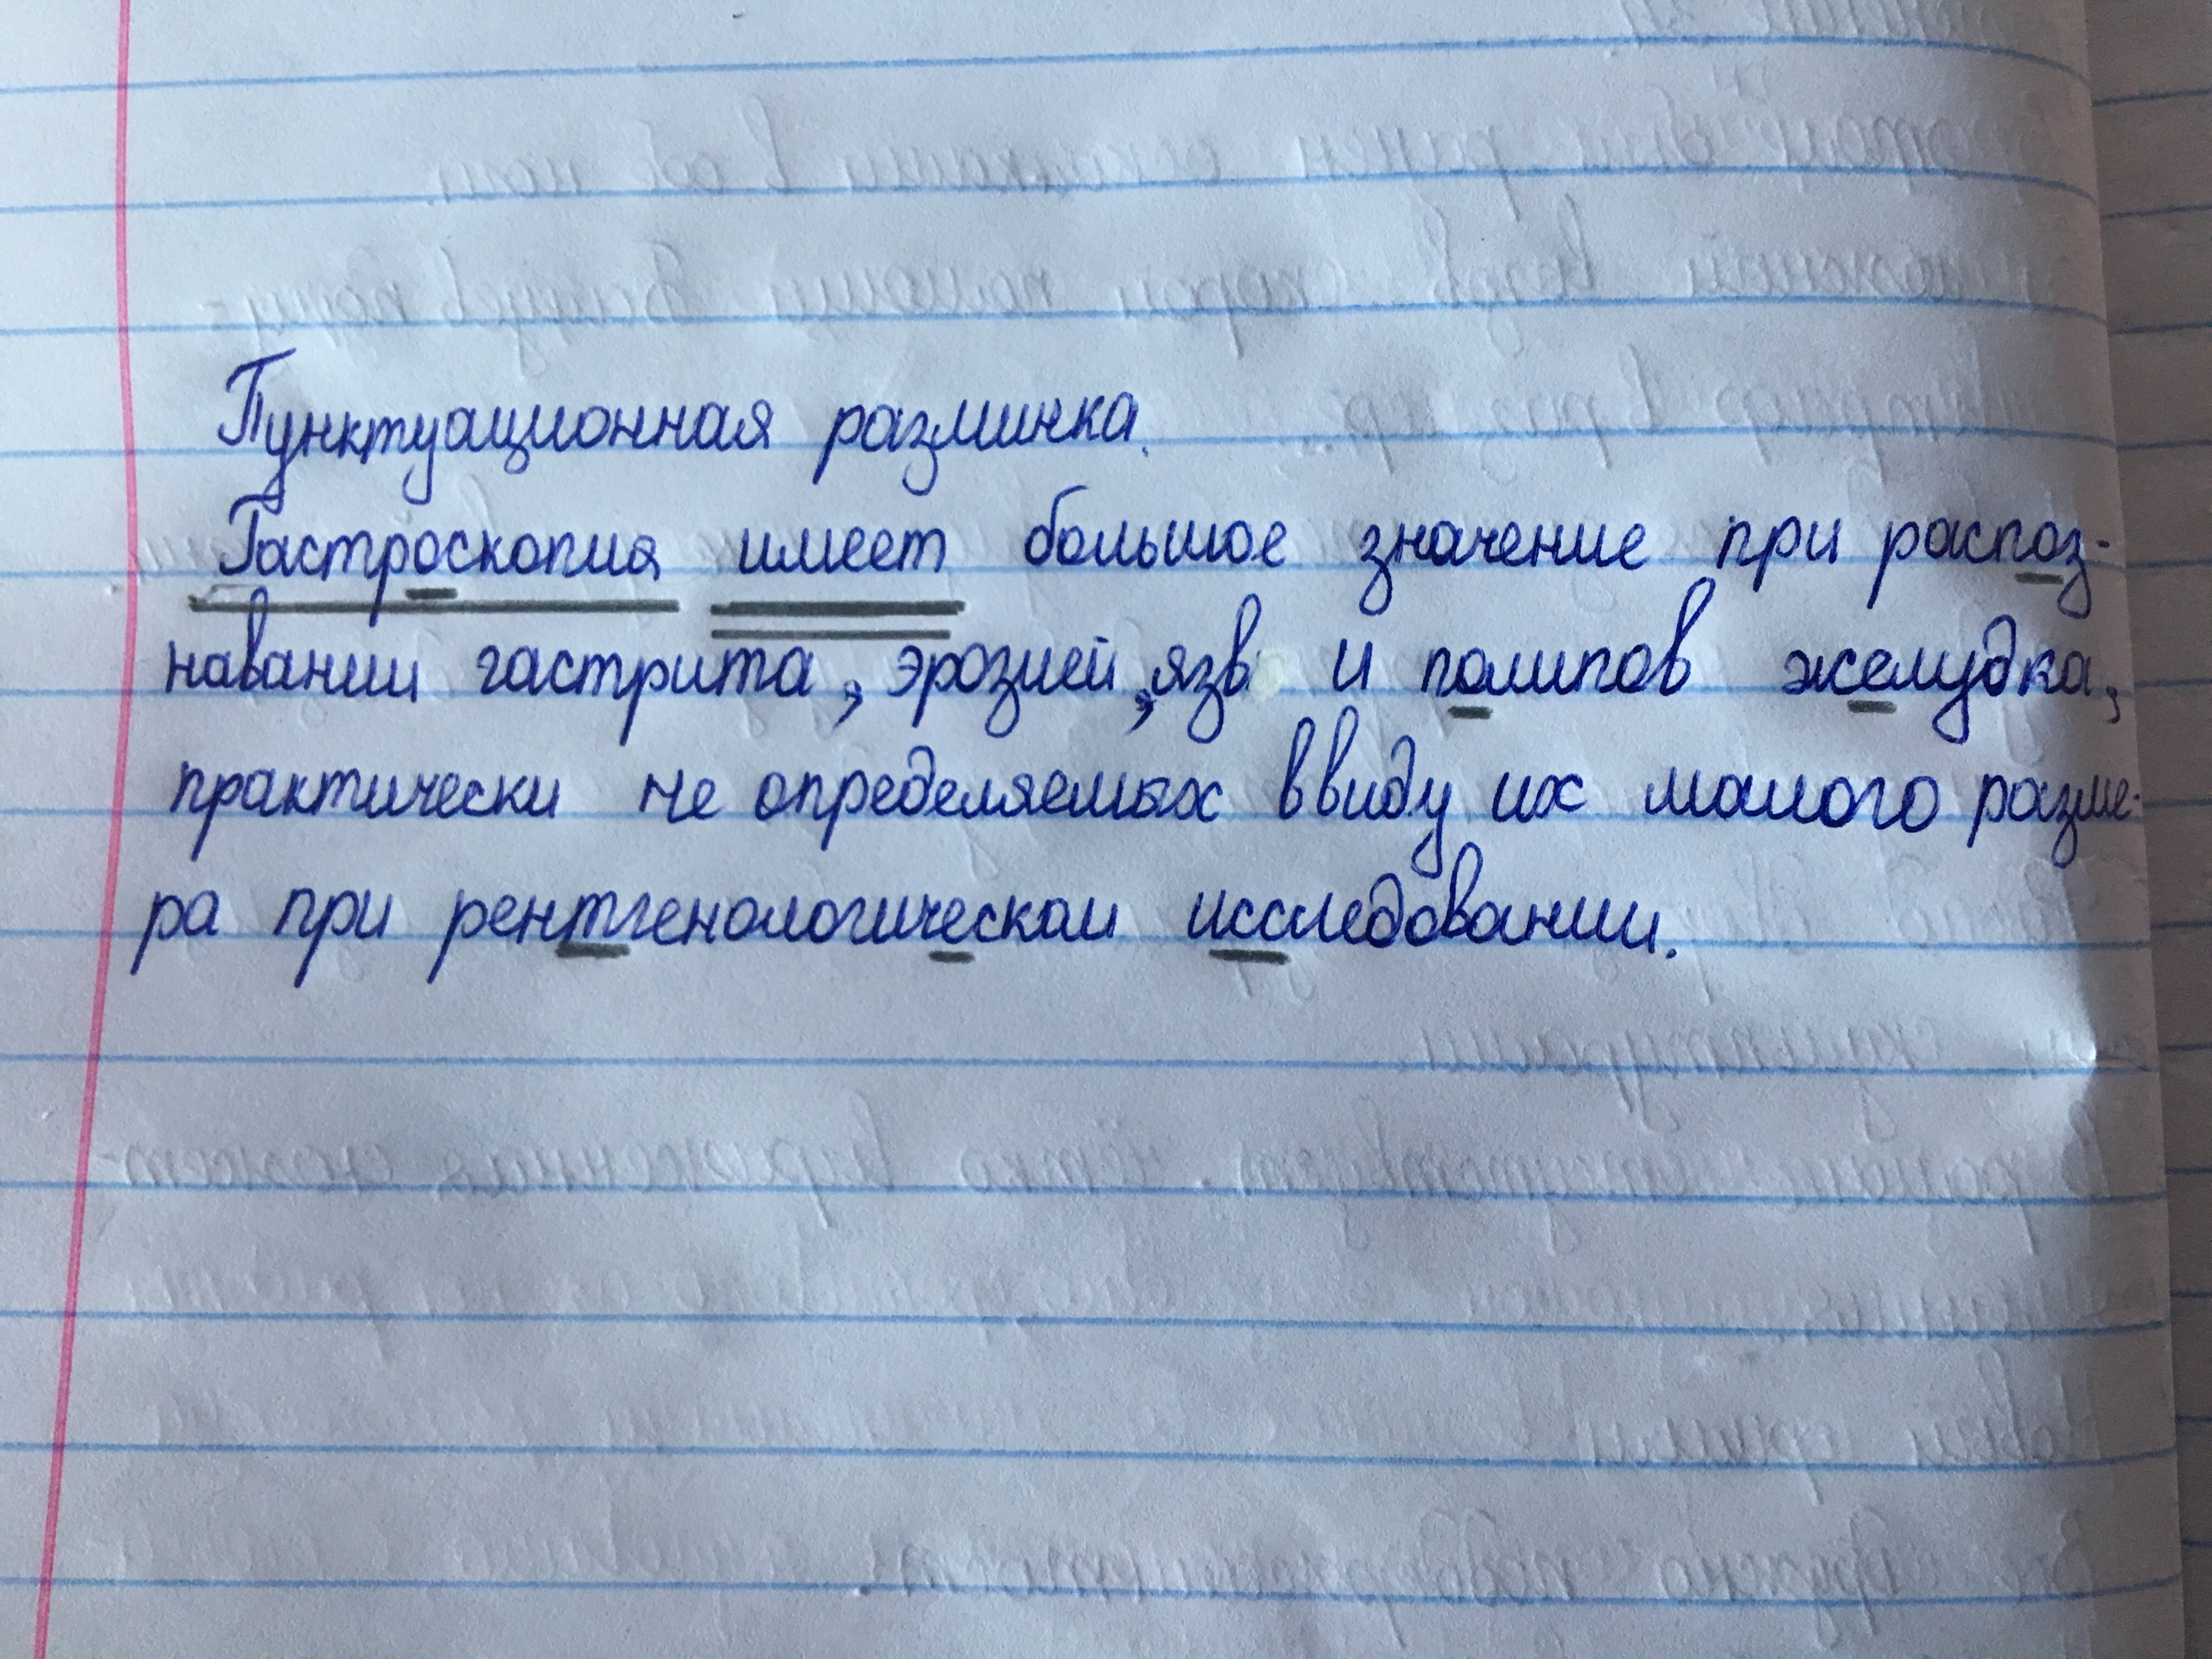 Пунктуационная разминка.
Гастроскопия имеет большое значение при распоз-
навании гастрита, эрозией, язв и полипов желудка,
практически не определяемых ввиду их малого разме-
ра при рентгенологическом исследовании.